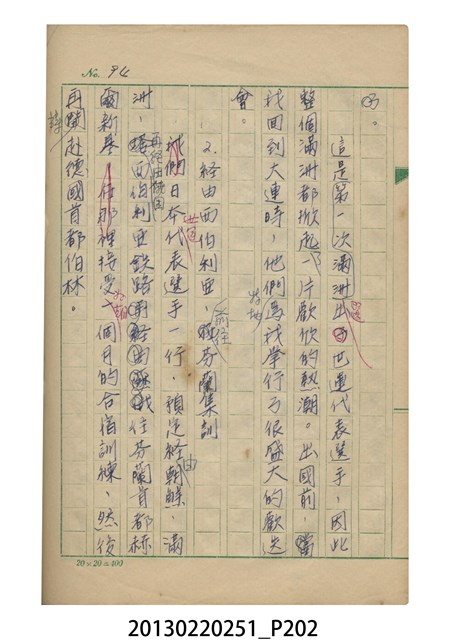 No. 94
了。
這是第一次滿洲出選奧運代表選手,因此
整個滿洲都掀起一片歡欣的熱潮。出國前,當
我回到大連時,他們特地為我舉行了很盛大的歡送
會。
2. 經由西伯利亞,前往芬蘭集訓
我們日本代表選手一行,預定經由朝鮮、滿
洲、西伯利亞鐵路再經由蘇俄往芬蘭首都赫
爾新基,在那裡接受一個月的合宿訓練,然後
再轉赴德國首都伯林。
20×20=400
20130220251_P202